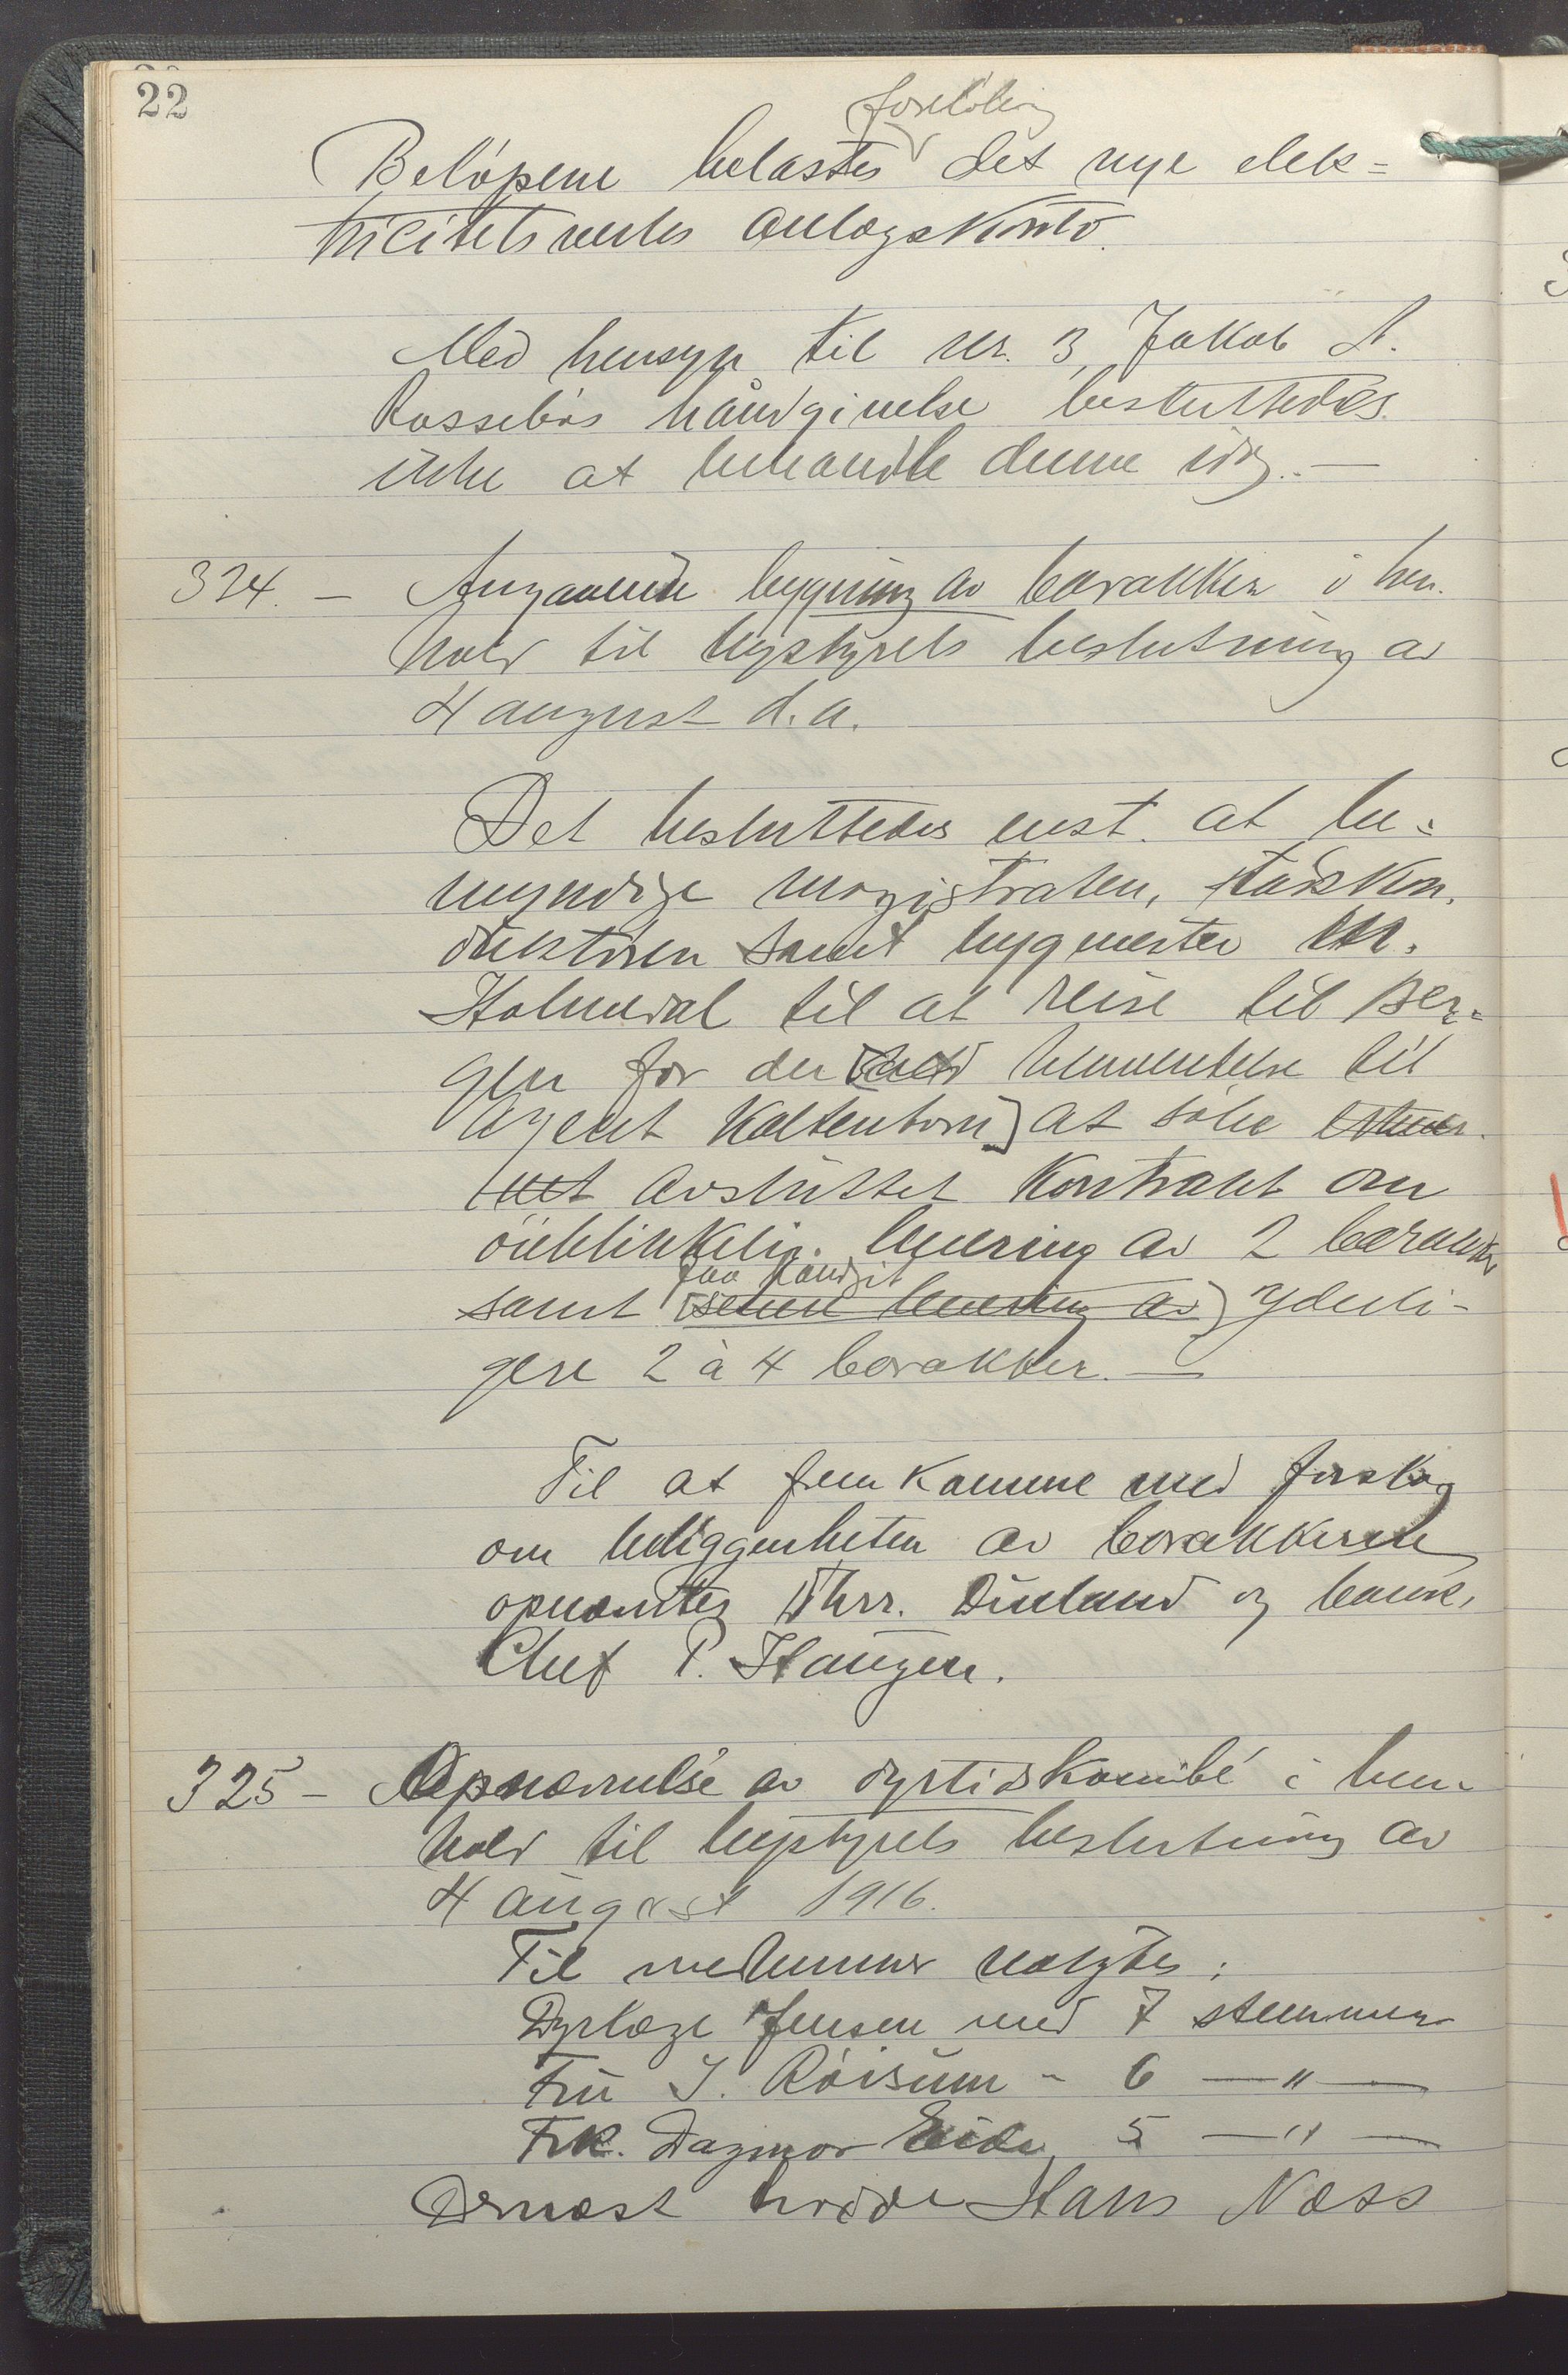 22
foreløbig
Beløpene belastes det nye elek=
tricitetsverks anlægskonto.
Med hensyn til nr. 3, Jakob A.
Rossebøs håndgivelse besluttedes
ikke at behandle denne idag. —
324. — Angaaende bygning av barakker i hen-
hold til bystyrets beslutning av
4 august d.a.
Det besluttedes enst. at be=
myndige magistraten, stadskon-
duktøren samt bygmester M.
Holmedal til at reise til Ber=
gen for der [ved henvendelse til
Agent Kaltenborn] at søke
avsluttet kontrakt om
øieblikkelig levering av 2 barakker
paa haand git
samt [senere levering av] yderli-
gere 2 à 4 barakker. —
Til at fremkomme med forslag
om beliggenheten av barakkerne
opnævntes Hrr. Dueland og bank-
Chef P. Haugen.
325 — Opnævnelse av dyrtidskomité i hen-
hold til bystyrets beslutning av
4 august 1916.
Til medlemmer valgtes:
Dyrlæge Jensen med 7 stemmer
Fru J. Røisum - 6 — " —
Frk. Dagmar Eide 5 — " —
Dernæst hadde Hans Næss